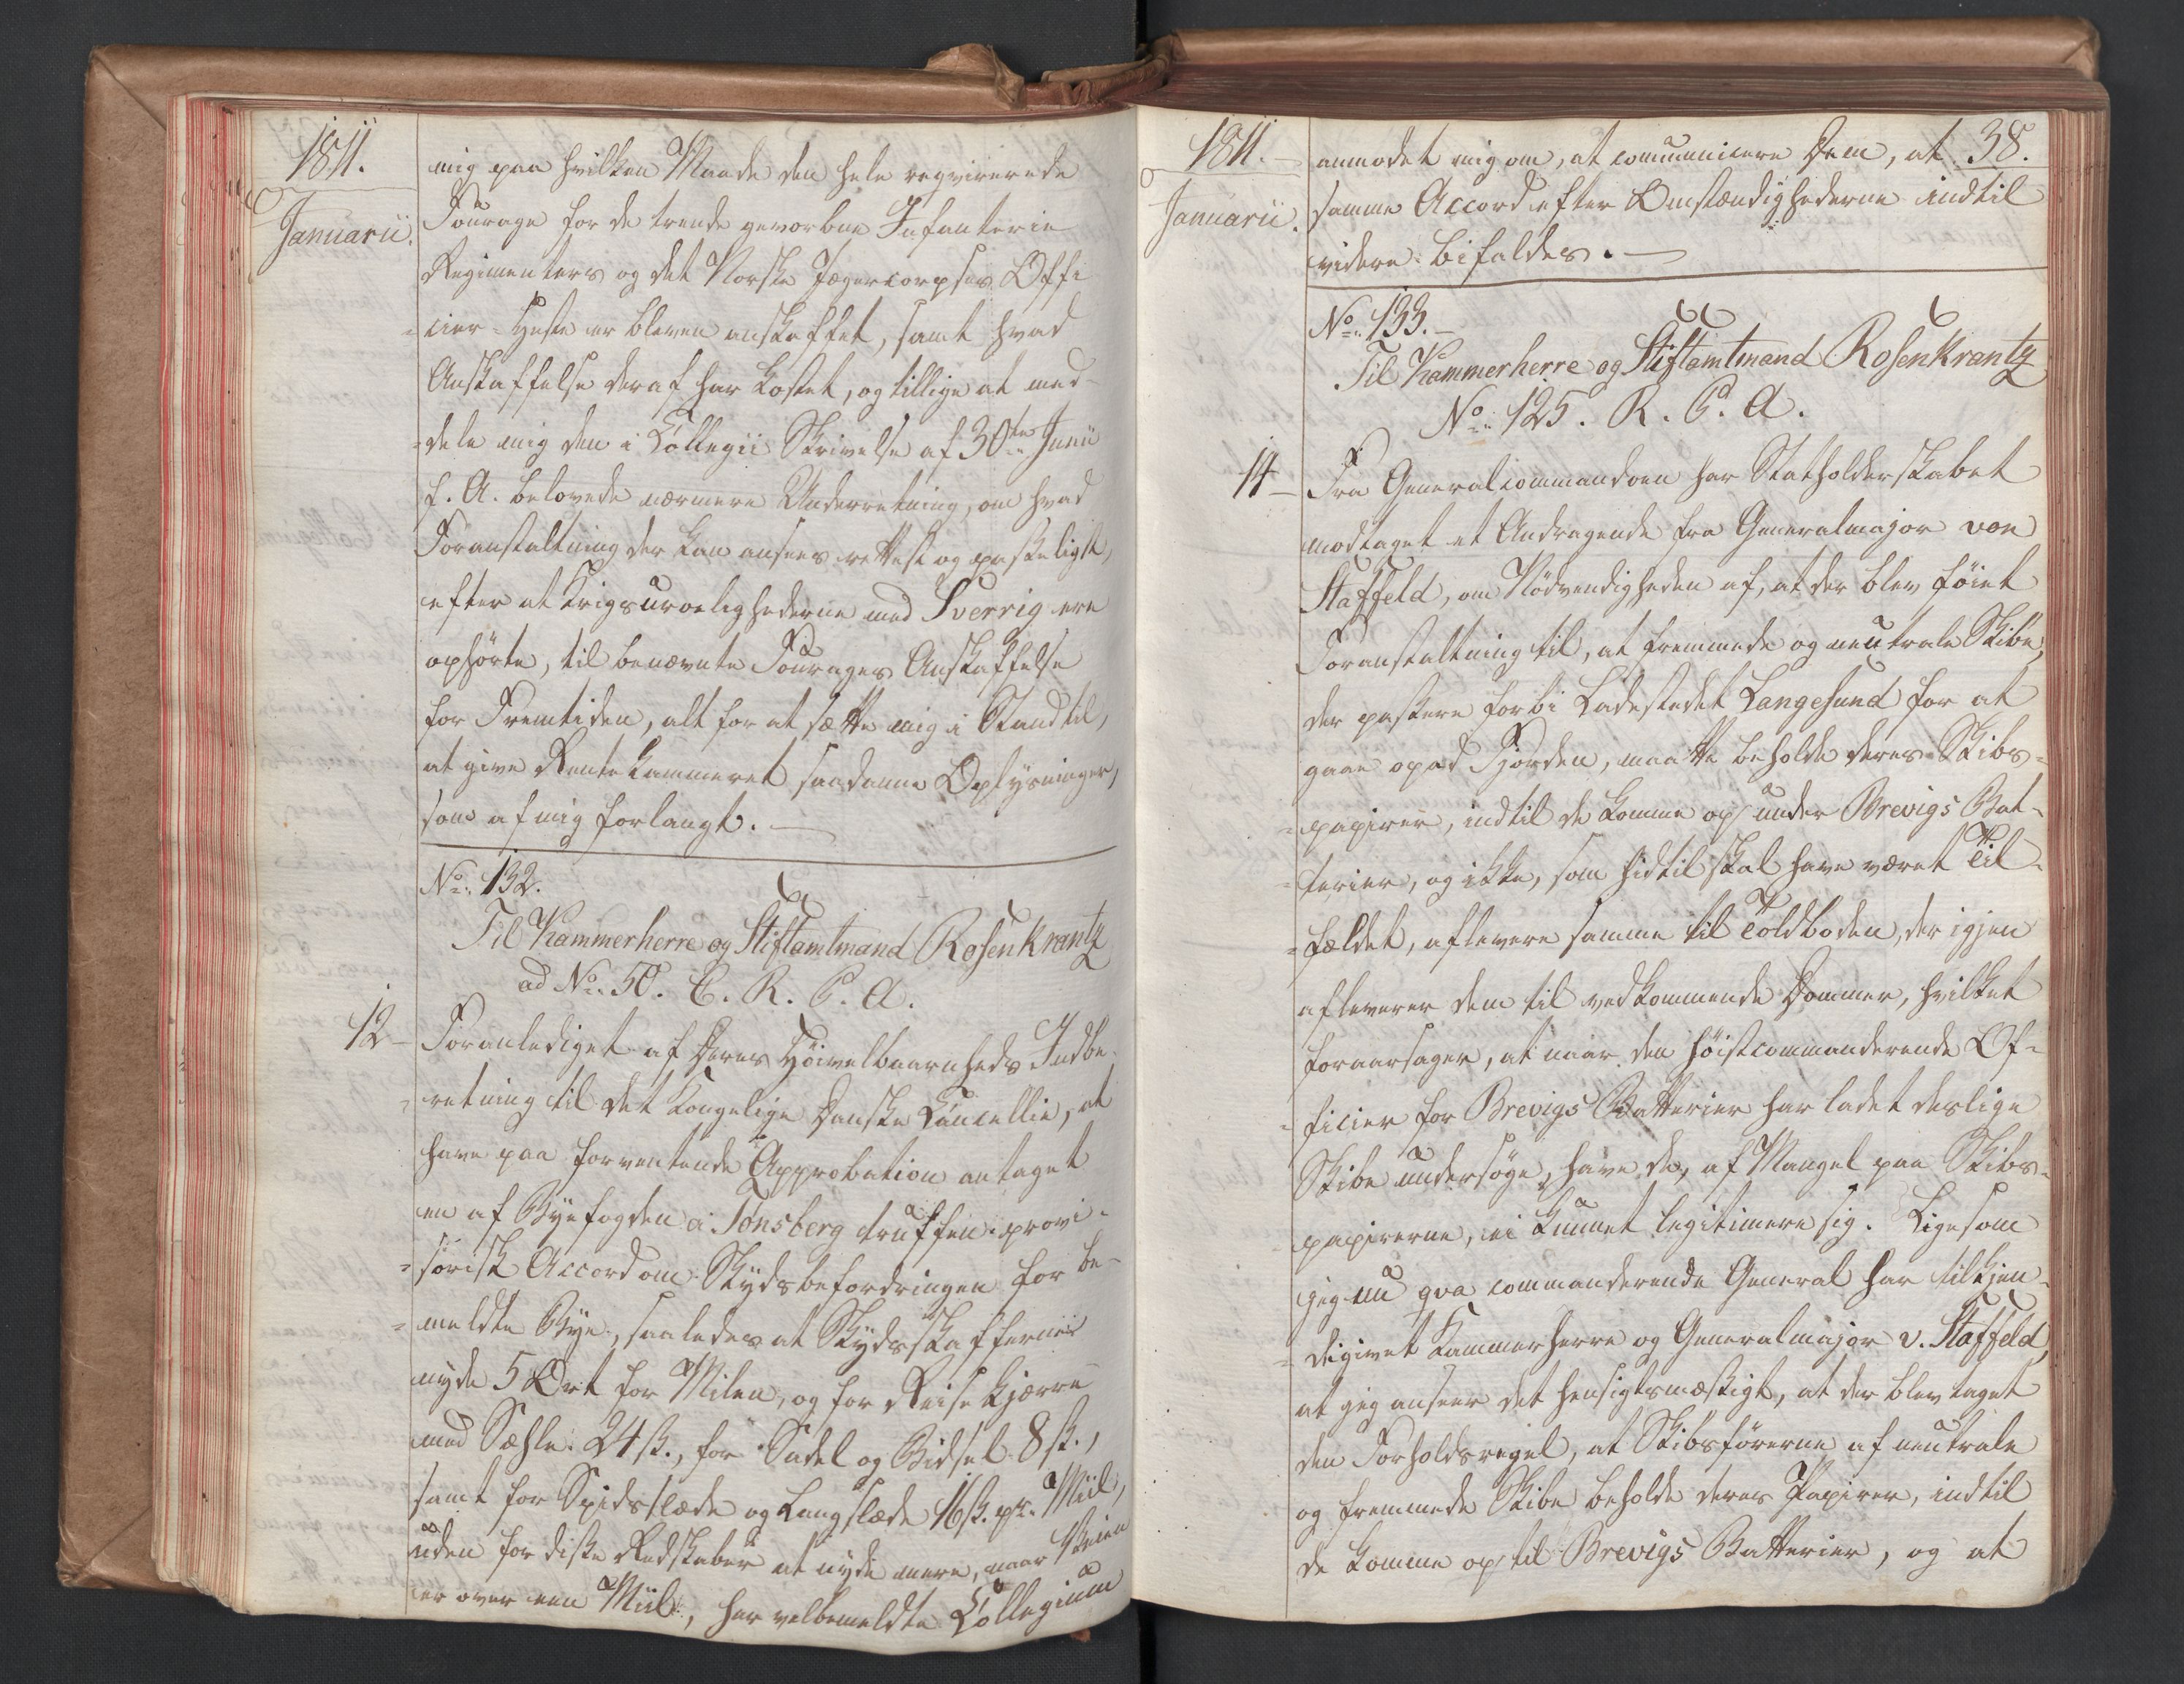 1811.
Januarii.
mig paa hvilken Maade den hele reqvirerede
Fourage for de trende gevorbne Infanterie
Regimenters og det Norske Jægercorpses Offi
=cier-Heste er bleven anskaffet, samt hvad
Anskaffelse deraf har kostet, og tillige at med-
=dele mig den i Collegii Skrivelse af 30te Junii
f. A. belovede nærmere Underretning, om hvad
Foranstaltning der kan ansees rettest og paskeligst,
efter at Krigsuroelighederne med Sverrig ere
ophörte, til benævnte Fourages Anskaffelse
for Fremtiden, alt for at sætte mig i Stand til,
at give Rentekammeret saadanne Oplysninger,
som af mig forlangt. —
No. 132.
Til Kammerherre og Stiftamtmand Rosenkrantz
ad No. 50. C. R. P. A.
12 –
Foranlediget af Deres Høivelbaarnheds Indbe-
=retning til det Kongelige Danske Cancellie, at
have paa forventende Approbation antaget
en af Byefogden i Tønsberg truffen provi-
=sorisk Accord om Skydsbefordringen for be-
=meldte Bye, saaledes at Skydsskafferne
nyde 5 Ort for Milen, og for Reise Kjærre
med Sæhle 24 ß., for Sadel og Bidsel 8 ß.,
samt for Spidsslæde og Langslæde 16 ß. pr. Miil,
uden for diße Redskaber at nyde mere, naar Veien
er over een Miil, har velbemeldte Collegium
1811. –
Januarii.
38.
anmodet mig om, at communicere Dem, at
samme Accord efter Omstændighederne indtil
videre bifaldes. —
No. 133. –
Til Kammerherre og Stiftamtmand Rosenkrantz
No. 125. R. P. A.
14 –
Fra Generalcommandoen har Statholderskabet
modtaget et Andragende fra Generalmajor von
Staffeld, om Nödvendigheden af, at der blev föiet
Foranstaltning til, at fremmede og neutrale Skibe,
der paßere forbi Ladestedet Langesund for at
gaae opad Fjorden, maatte beholde deres Skibs-
=papirer, indtil de komme op under Brevigs Bat-
=terier, og ikke, som hidtil skal have været Til-
=fældet, aflevere samme til Toldboden, der igjen
afleverer dem til vedkommende Dommer, hvilket
foraarsager, at naar den höistcommanderende Of-
=ficier for Brevigs Batterier har ladet deslige
Skibe undersöge, have de, af Mangel paa Skibs-
papirerne, ei kunnet legitimere sig. Ligesom
jeg nu qva commanderende General har tilkjen-
=degivet Kammerherre og Generalmajor v. Staffeld,
at jeg anseer det hensigtsmæßigt, at der blev taget
den Forholdsregel, at Skibsförerne af neutrale
og fremmede Skibe beholde deres Papirer, indtil
de komme op til Brevigs Batterier, og at